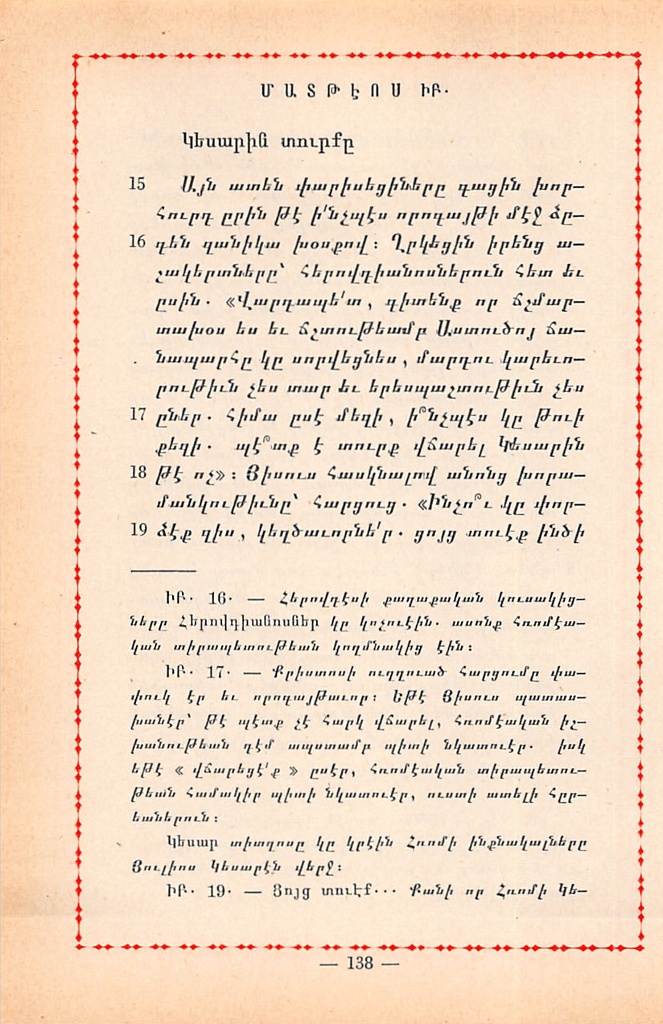 ՄԱՏԹԷՈՍ ԻԲ.
Կեսարին տուրքը
15 Այն ատեն փարիսեցիները գացին խոր—
հուրդ ըրին թէ ի՛նչպէս որոգայթի մէջ ձը—
16 գեն զանիկա խօսքով։ Ղրկեցին իրենց ա—
շակերտները՝ հերովդիանոսներուն հետ եւ
ըսին. «Վարդապե՛տ, գիտենք որ ճշմար—
տախօս ես եւ ճշտութեամբ Աստուծոյ ճա—
նապարհը կը սորվեցնես, մարդու կարեւո—
րութիւն չես տար եւ երեսպաշտութիւն չես
17 ըներ. հիմա ըսէ մեզի, ի՞նչպէս կը թուի
քեզի. պէ՞տք է տուրք վճարել Կեսարին
18 թէ ոչ»։ Յիսուս հասկնալով անոնց խորա—
մանկութիւնը՝ հարցուց. «Ինչո՞ւ կը փոր—
19 ձէք զիս, կեղծաւորնե՛ր. ցոյց տուէք ինծի
ԻԲ. 16. — Հերովդէսի քաղաքական կուսակից—
ները Հերովդիանոսներ կը կոչուէին. ասոնք Հռոմէա—
կան տիրապետութեան կողմնակից էին։
ԻԲ. 17. — Քրիստոսի ուղղուած հարցումը փա—
փուկ էր եւ որոգայթաւոր։ Եթէ Յիսուս պատաս—
խանէր՝ թէ պէտք չէ հարկ վճարել, հռոմէական իշ—
խանութեան դէմ ապստամբ պիտի նկատուէր. իսկ
եթէ « վճարեցէ՛ք » ըսէր, հռոմէական տիրապետու—
թեան համակիր պիտի նկատուէր, ուստի ատելի հրը—
եաներուն։
Կեսար տիտղոսը կը կրէին Հռոմի ինքնակալները
Յուլիոս Կեսարէն վերջ։
ԻԲ. 19. — Ցոյց տուէք... Քանի որ Հռոմի Կե—
— 138 —